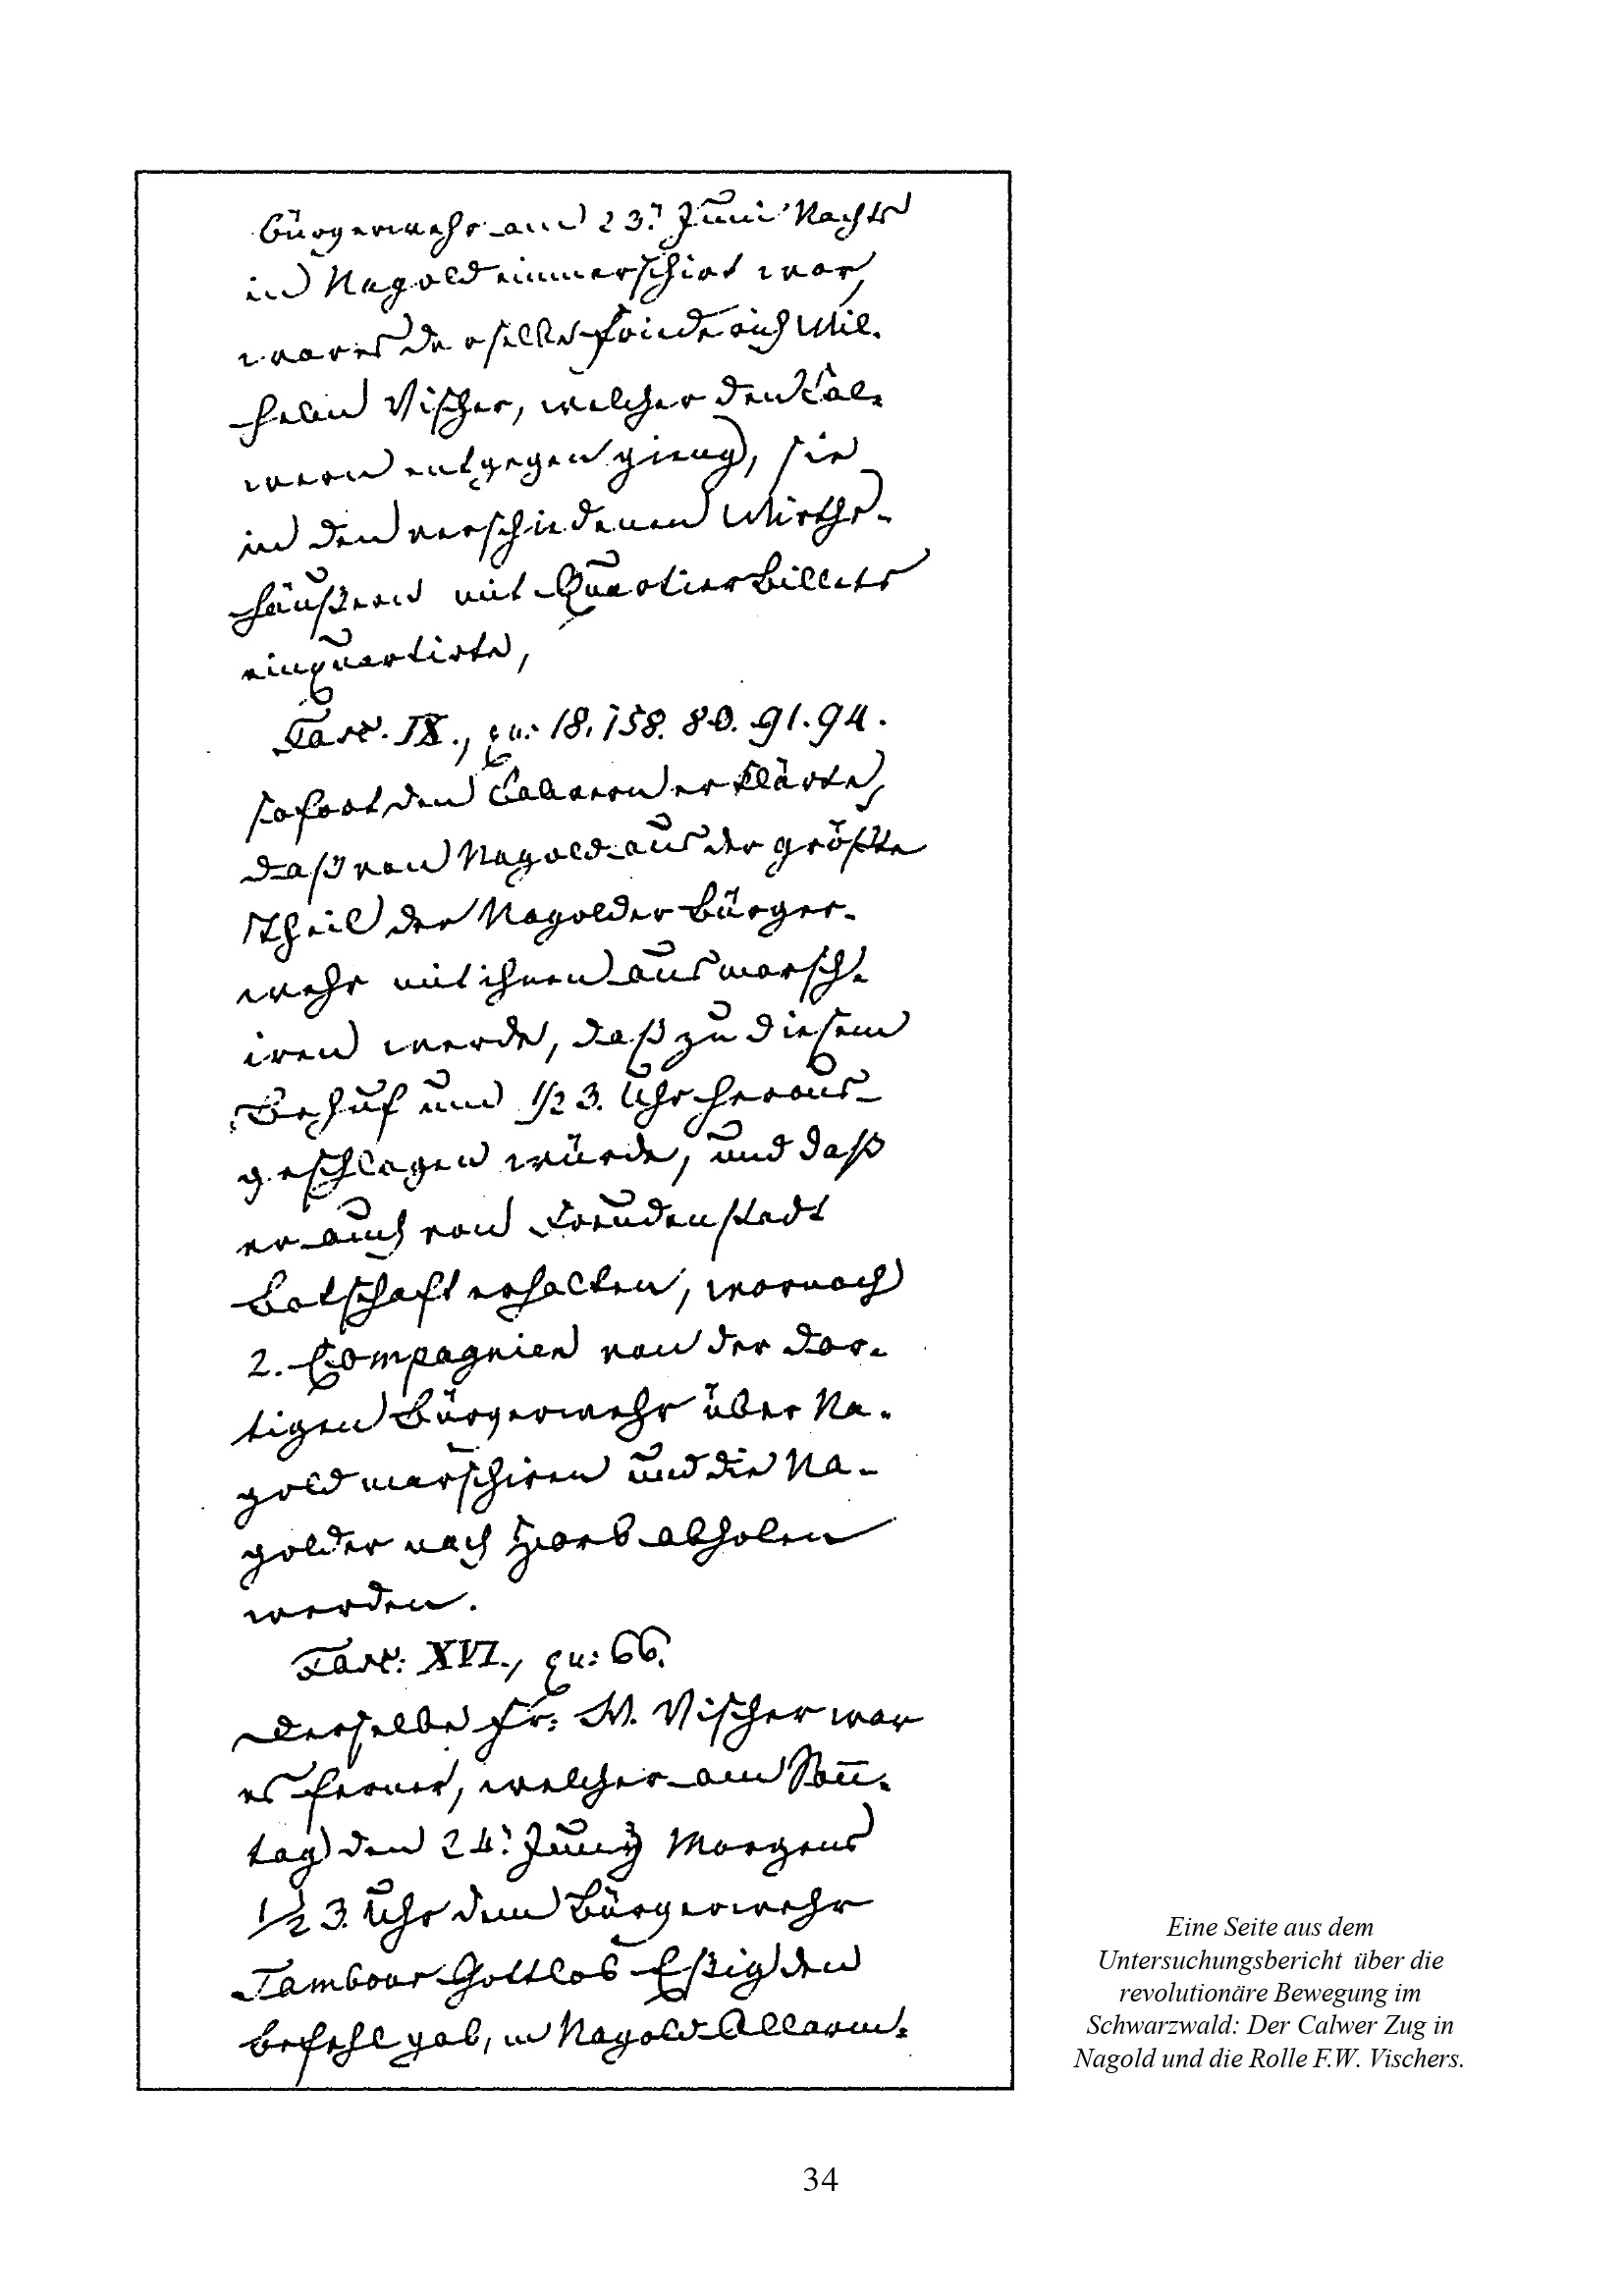 Bürgerwehr am 23. Juni Nachts
in Nagold einmarschirt war,
war es derselbe Friederich Wil-
helm Vischer, welcher den Cal-
wern entgegen gieng, sie
in den verschiedenen Wirths-
häußern mit Quartierbillets
einquartirte,
Fasc. IX., qu: 18. 158. 80. 91. 94.
sofort den Calwern erklärte,
daß von Nagold aus der größte
Theil der Nagolder Bürger-
wehr mit ihnen ausmarsch-
iren werde, daß zu diesem
Behuf um 1/2 3. Uhr heraus-
geschlagen würde, und daß
er auch von Freudenstadt
Botschaft erhalten, wornach
2. Compagnien von der dor-
tigen Bürgerwehr über Na-
gold marschiren und die Na-
golder nach Horb abholen
werden.
Fasc: XVI., qu: 66.
Derselbe Fr: W. Vischer war
es ferner, welcher am Son̄-
tag den 24. Juny Morgens
1/2 3. Uhr dem Bürgerwehr
Tambour Gottlob Eßig den
Befehl gab, in Nagold Allarm-
Eine Seite aus dem
Untersuchungsbericht über die
revolutionäre Bewegung im
Schwarzwald: Der Calwer Zug in
Nagold und die Rolle F.W. Vischers.
34